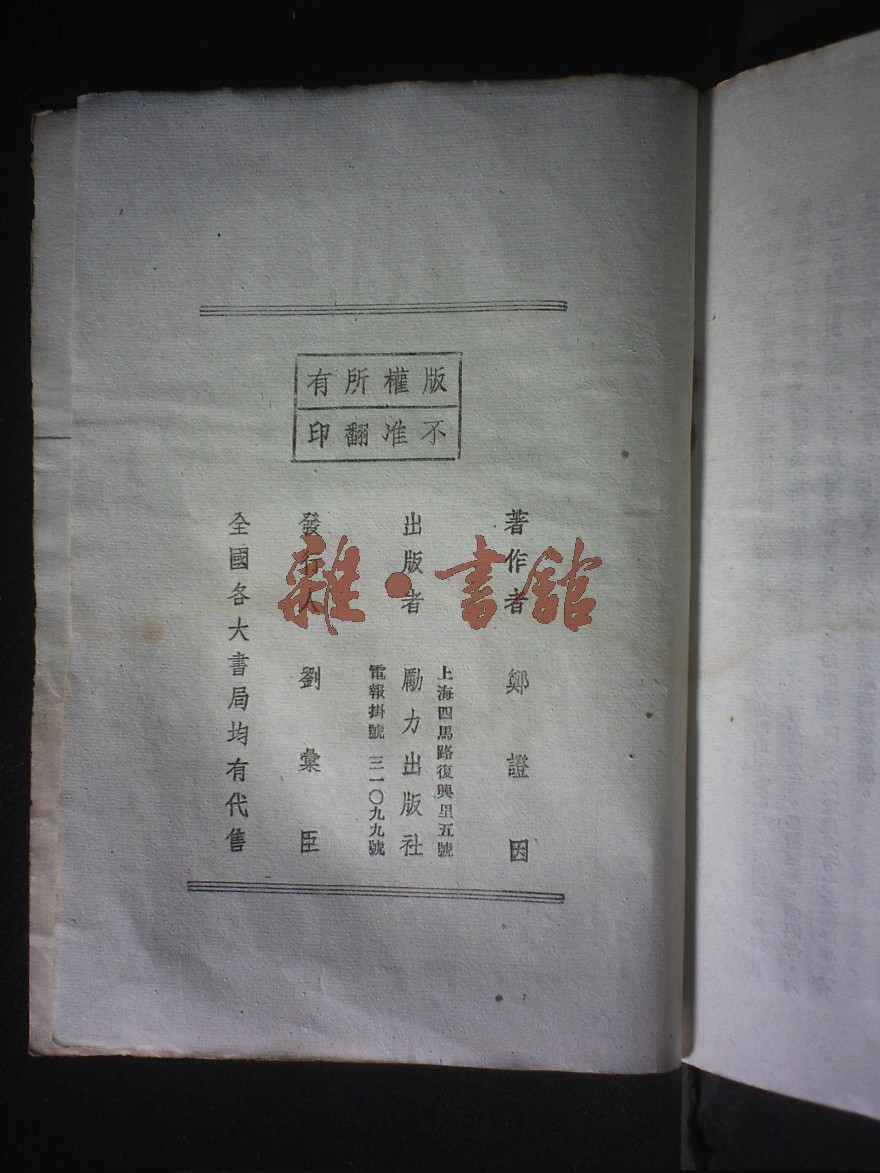 版權所有
不准翻印
著作者 鄭證因
上海四馬路復興里五號
出版者 勵力出版社
電報掛號 三一〇九九號
發行人 劉彙臣
全國各大書局均有代售
雜·書館